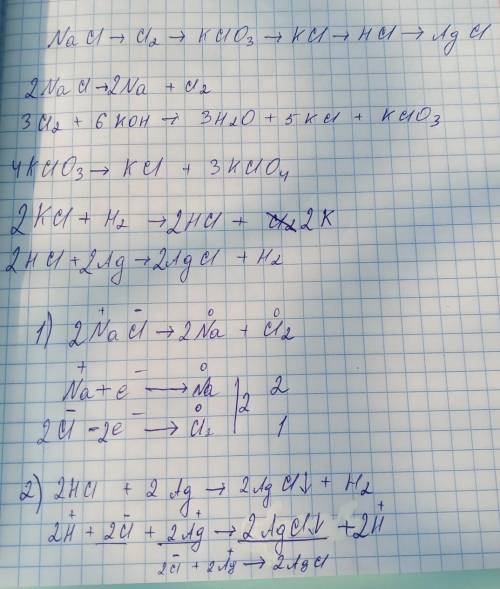 NaCl → Cl₂ → KClO₃ → KCl → HCl → AgCl
2NaCl → 2Na + Cl₂
3Cl₂ + 6KOH → 3H₂O + 5KCl + KClO₃
4KClO₃ → KCl + 3KClO₄
2KCl + H₂ → 2HCl + 2K
2HCl + 2Ag → 2AgCl + H₂
1) 2Na⁺Cl⁻ → 2Na⁰ + Cl₂⁰
Na⁺ + e⁻ → Na⁰ | 2 | 2
2Cl⁻ - 2e⁻ → Cl₂⁰ | 1
2) 2HCl + 2Ag → 2AgCl↓ + H₂
2H⁺ + 2Cl⁻ + 2Ag⁺ → 2AgCl↓ + 2H⁺
2Cl⁻ + 2Ag⁺ → 2AgCl